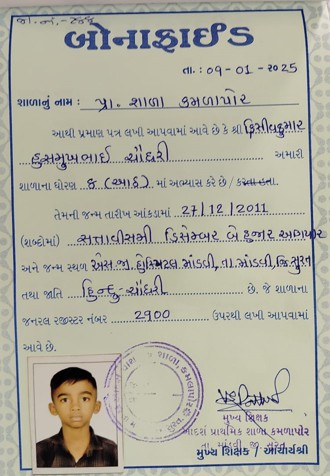 જા. નં. - ૨૪૪
બોનાફાઈડ
તા. : ૦9 - 01 - ૨૦25
શાળાનું નામ : પ્રા. શાળા કમળાપોર
આથી પ્રમાણ પત્ર લખી આપવામાં આવે છે કે શ્રી
હસમુખભાઈ ચૌધરી અમારી
શાળાના ધોરણ ૮ (આઠ) માં અભ્યાસ કરે છે / કરતા હતા.
તેમની જન્મ તારીખ આંકડામાં 27/12/2011
(શબ્દોમાં) સત્તાવીસમી ડિસેમ્બર બે હજાર અગિયાર
અને જન્મ સ્થળ એસ.જી. હોસ્પિટલ માંડવી, તા. માંડવી, જિ. સુરત
તથા જાતિ હિન્દુ - ચૌધરી છે. જે શાળાના
જનરલ રજીસ્ટર નંબર 2900 ઉપરથી લખી આપવામાં
આવે છે.
મુખ્ય શિક્ષક
આદર્શ પ્રાથમિક શાળા કમળાપોર
તા. માંડવી જી. સુરત
મુખ્ય શિક્ષક / આચાર્યશ્રી